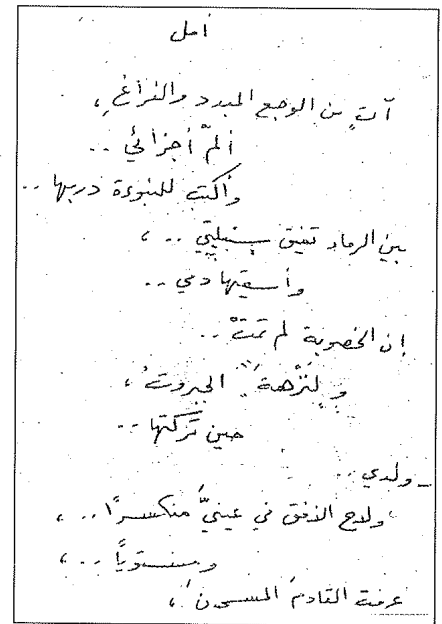 أمل
آتٍ من الوجع المبدد والفراغِ،
ألمّ أجزائي ..
وأكتب للنبوءة دربها ..
بين الرماد تفيق سنبلتي ..،
وأسقيها دمي ..
إن الخصوبة لم تمتْ ..
الجبروت،
حين تركتها ..
- ولدي ..
ولاح الأفق في عينيَّ منكسراً ..،
ومستوياً ..،
عرفت القادمَ المسجون،